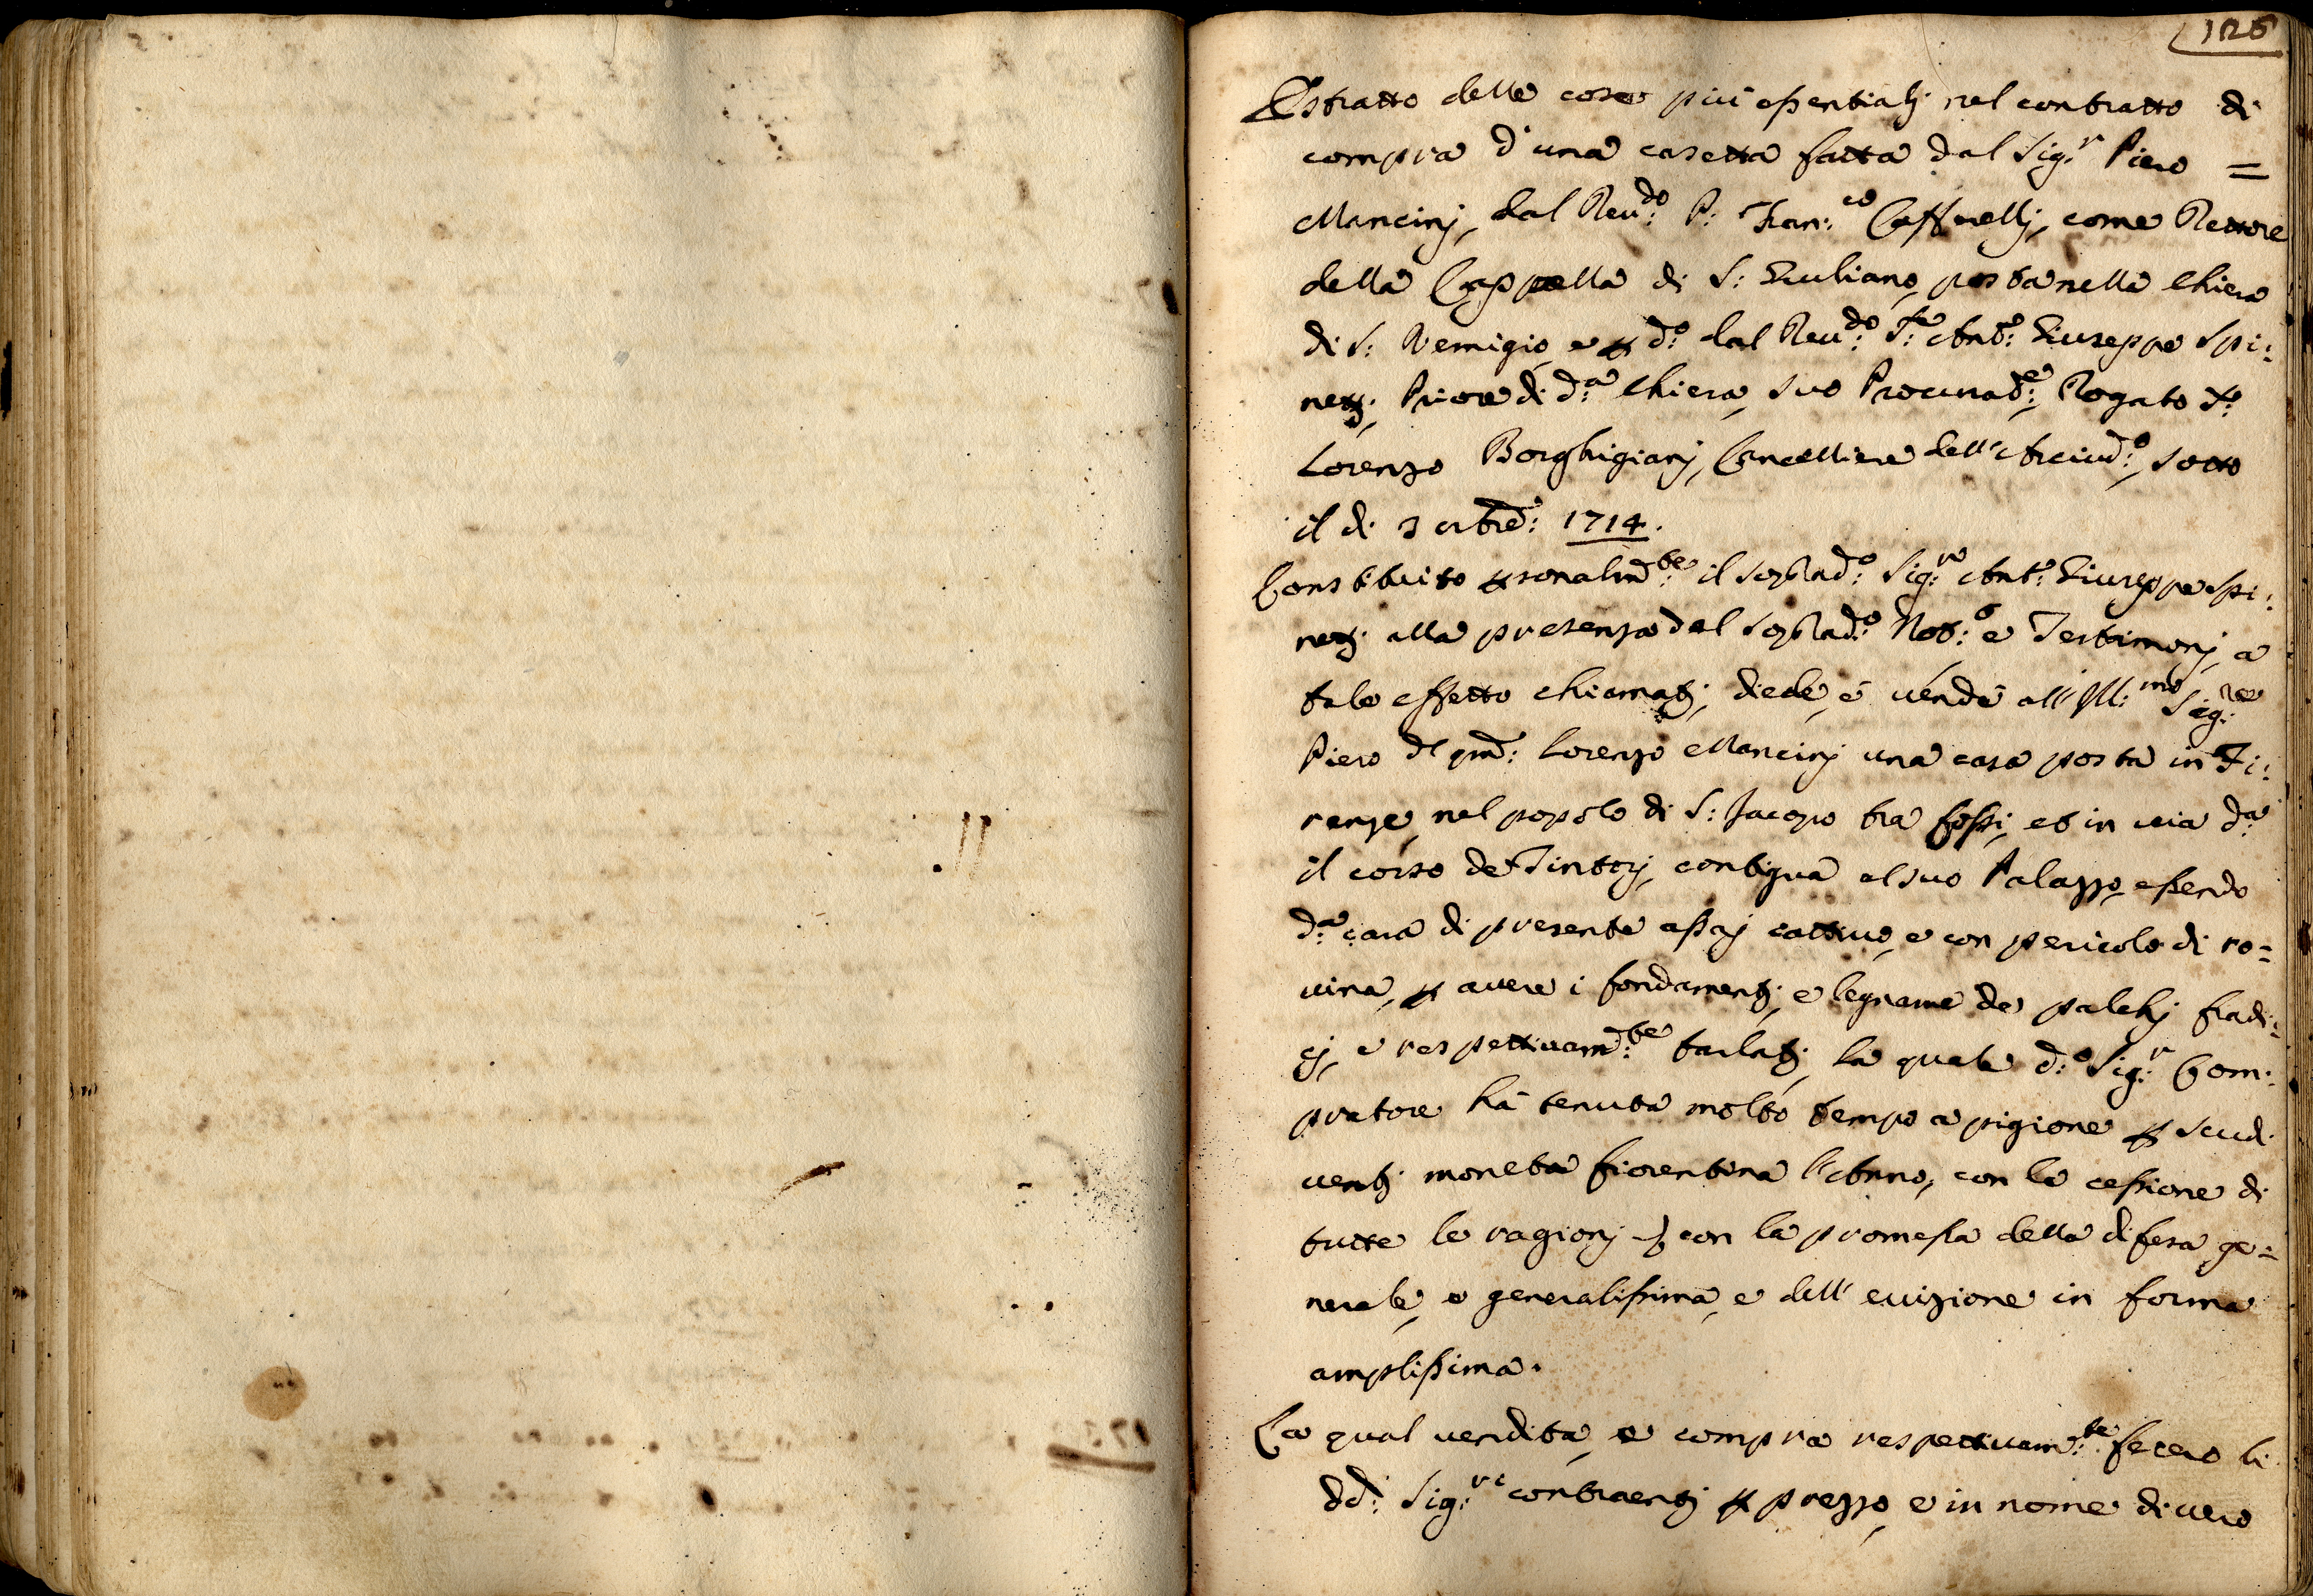 126
Estratto delle cose più essentialj nel contratto di
compra d'una casetta fatta dal Sig.r Piero =
Mancinj, dal Reu.do P: Fran.co Caffrellj, come Rettore
della Cappella di S: Giuliano, posta nella Chiesa
di S: Remigio, e p d.o dal Reu.do Antt.o Giuseppe Spi:
netj, Priore di d.a Chiesa, suo Procurad.e, Rogato
Lorenzo Borghigianj, Cancelliere dell'Arciud.o, sotto
il di 3 8bre: 1714.
Constituito psonalm.te il soprad.o Sig.re Ant.o Giuseppe Spi:
netj alla presenza del soprad.o Not.o e Testimonj, a
tale effetto chiamatj, diede, e uendè all'Ill.mo Sig.re
Piero del qm: Lorenzo Mancinj una casa posta in Fi:
renze, nel popolo di S: Jacopo tra fossi, et in uia d.a
il corso de Tintorj, contigua al suo Palazzo, essendo
d.a casa di presente assaj cattiua, e con pericolo di ro=
uina, p auere i fondamentj, e legname de palchj fradi:
cj, e respettiuam.te tarlatj, la quale d.o Sig.r Com:
pratore hà tenuta molto tempo a pigione p scudi
uentj moneta fiorentina l'Anno, con la cessione di
tutte le ragionj con la promessa della difesa ge=
nerale, e generalissima, e dell'euizione in forma
amplissima.
La qual uendita, e compra respettiuam.te fecero li
dd: Sig.ri contraentj p prezzo, e in nome di uero